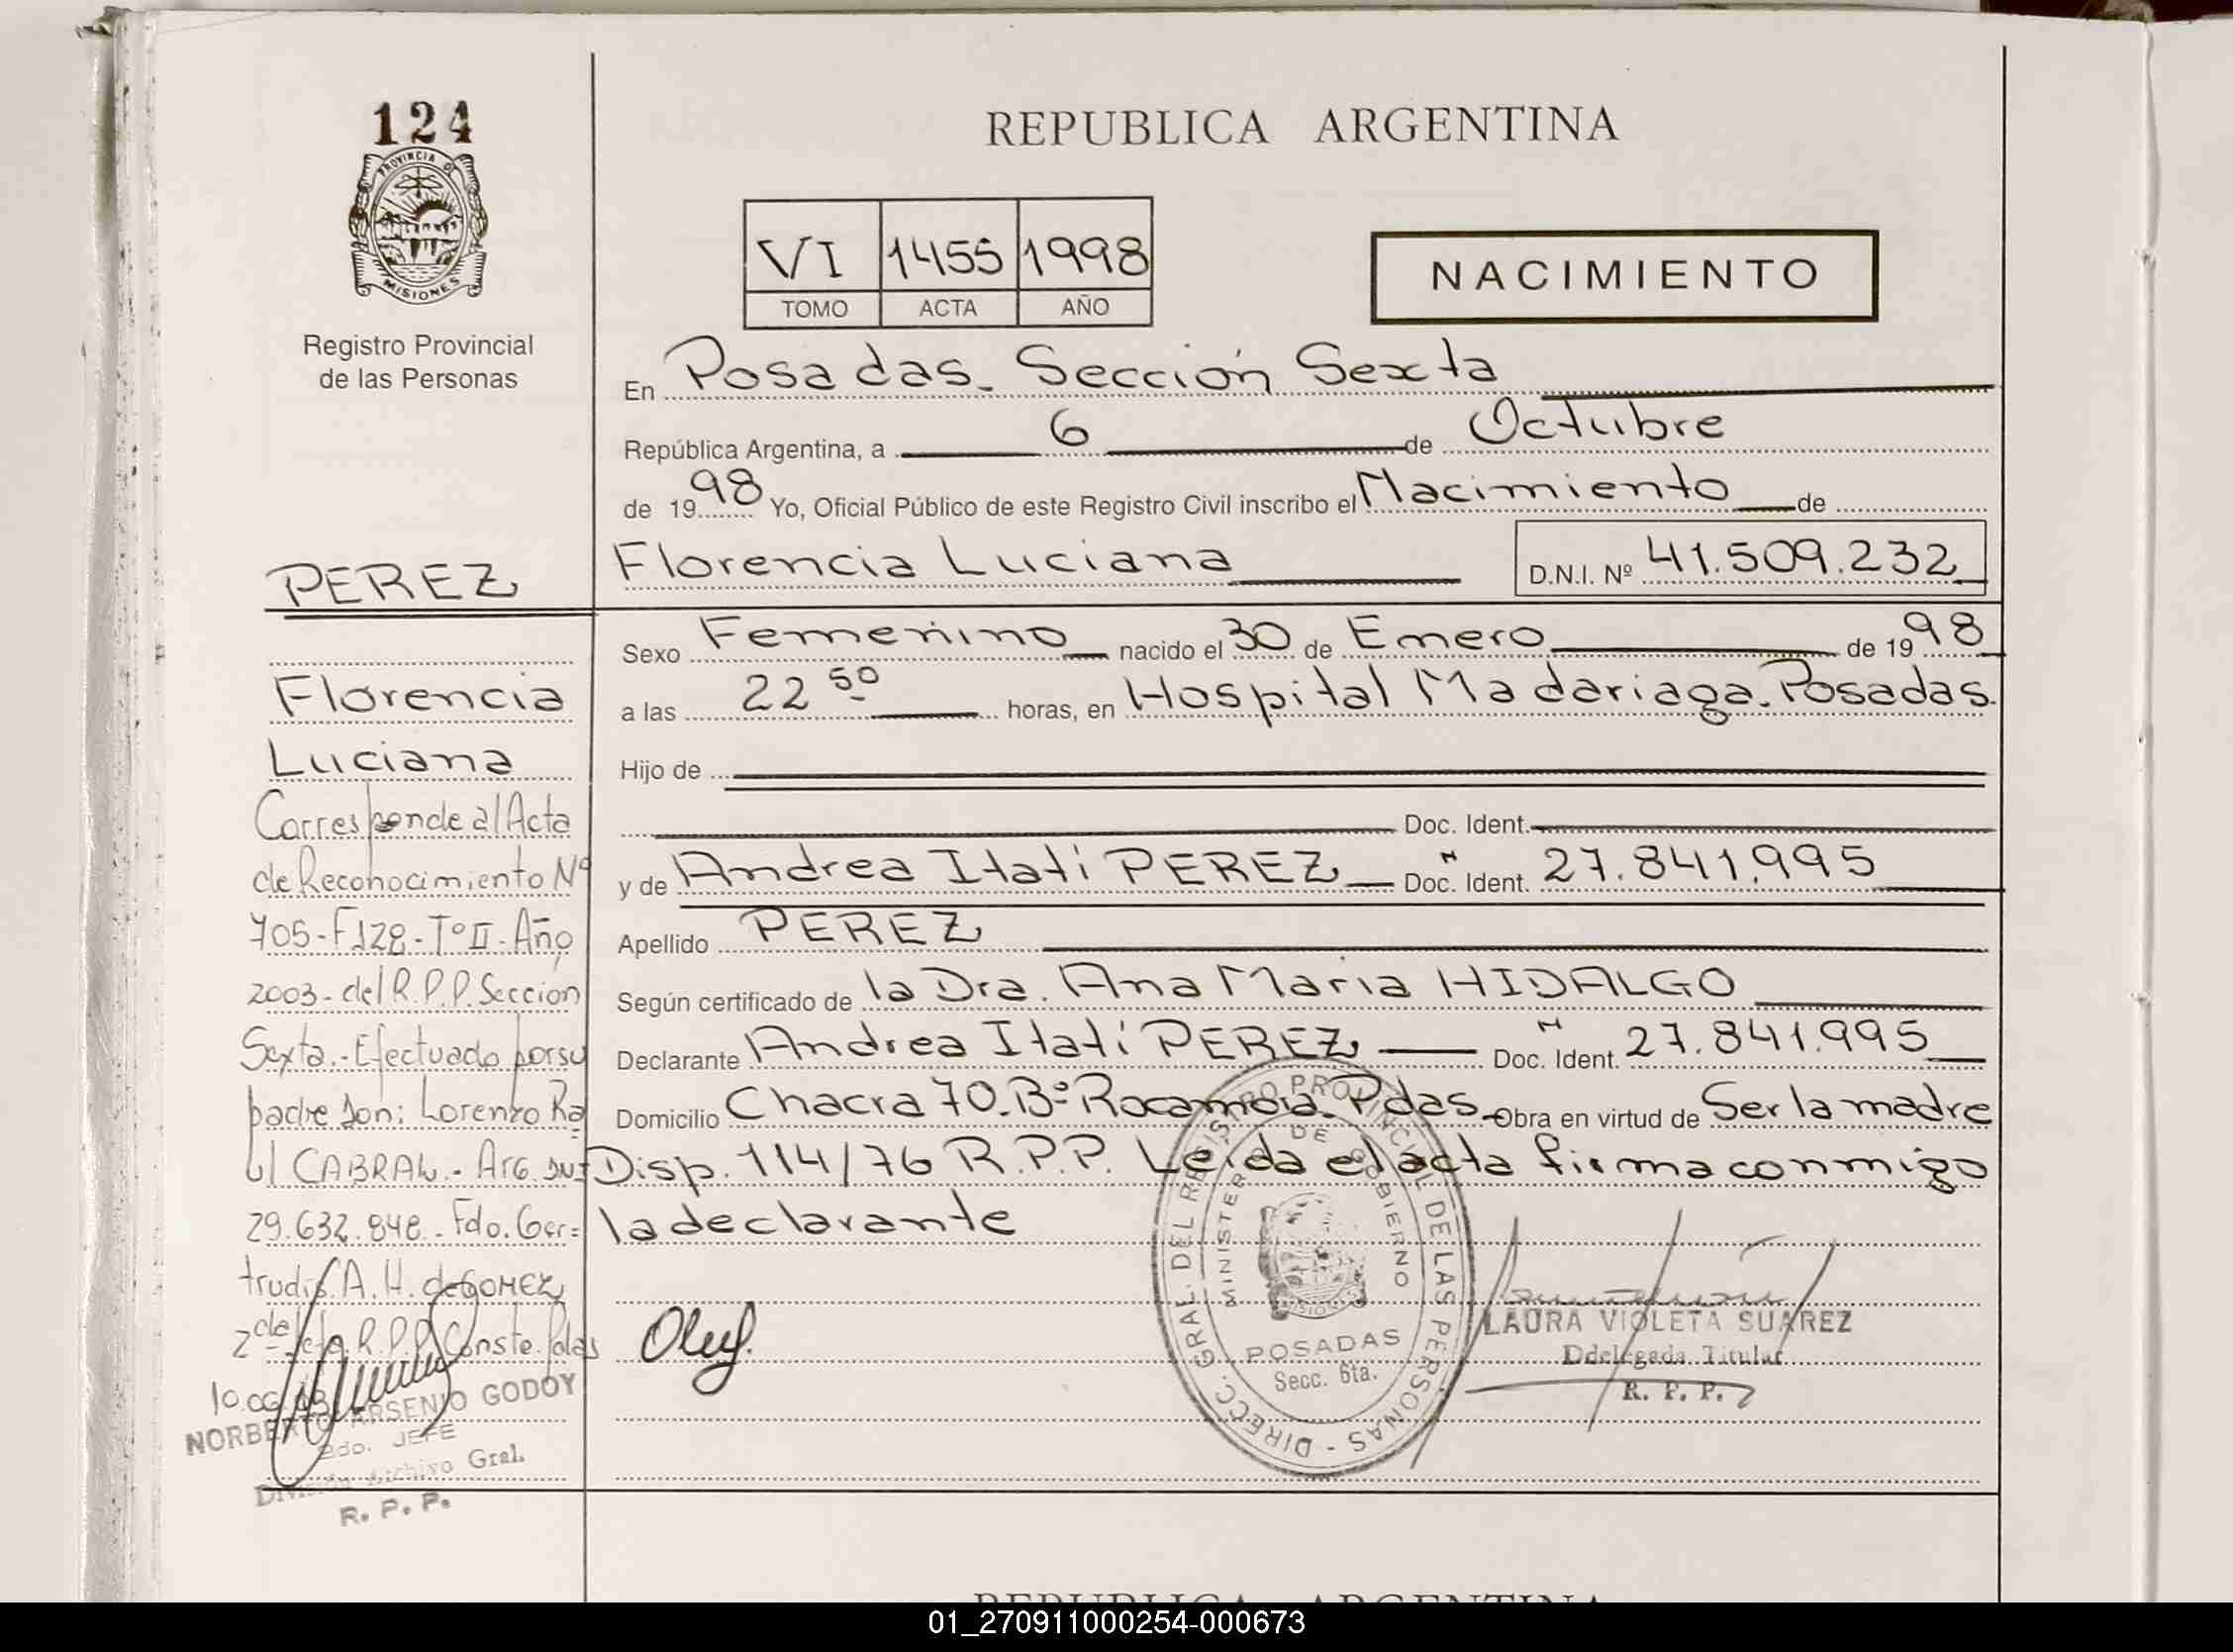 124
PROVINCIA DE
MISIONES
Registro Provincial
de las Personas
REPUBLICA ARGENTINA
VI 1455 1998
TOMO ACTA AÑO
NACIMIENTO
En Posadas. Sección Sexta
República Argentina, a 6 de Octubre
de 1998 Yo, Oficial Público de este Registro Civil inscribo el Nacimiento de
Florencia Luciana D.N.I. Nº 41.509.232
Sexo Femenino nacido el 30 de Enero de 1998
a las 22 50 horas, en Hospital Madariaga. Posadas.
Hijo de
Doc. Ident.
y de Andrea Itatí PEREZ Doc. Ident. 27.841.995
Apellido PEREZ
Según certificado de la Dra. Ana Maria HIDALGO
Declarante Andrea Itatí PEREZ Doc. Ident. 27.841.995
Domicilio Chacra 70. Bº Rocamora. Pdas. Obra en virtud de Ser la madre
Disp. 114/76 R.P.P. Leída el acta firma conmigo
la declarante
PEREZ
Florencia
Luciana
Corresponde al Acta
de Reconocimiento Nº
705-F128-TºII-Año
2003-del R.P.P. Sección
Sexta.-Efectuado por su
padre Don: Lorenzo Ra
ul CABRAL.- Arg. DNI
29.632.848.-Fdo. Ger=
trudis A. H. de GOMEZ
2do Jefe R.P.P. Conste. Pdas
10.06.03
NORBERTO ARSENIO GODOY
2do. JEFE
División Archivo Gral.
R. P. P.
DIRECC. GRAL. DEL REGISTRO PROVINCIAL DE LAS PERSONAS -
MINISTERIO DE GOBIERNO
MISIONES
POSADAS
Secc. 6ta.
LAURA VIOLETA SUAREZ
Ddelegada Titular
R. P. P.
REPUBLICA ARGENTINA
01_270911000254-000673